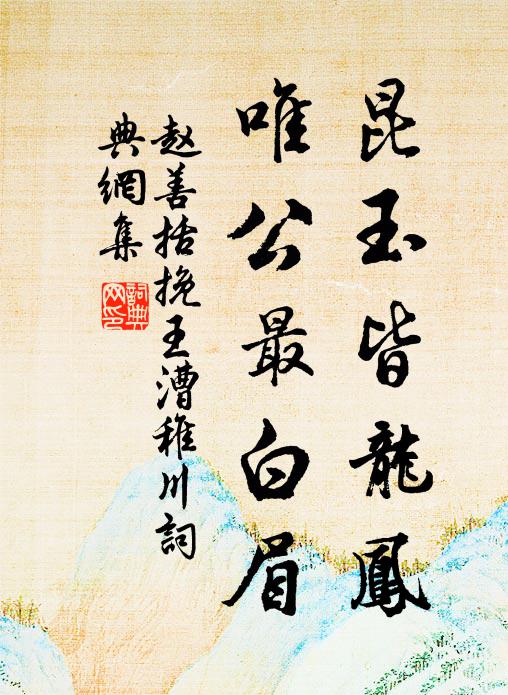 昆玉皆龍鳳
唯公最白眉
赵善括挽王漕稚川詞
典網集
詞典网印